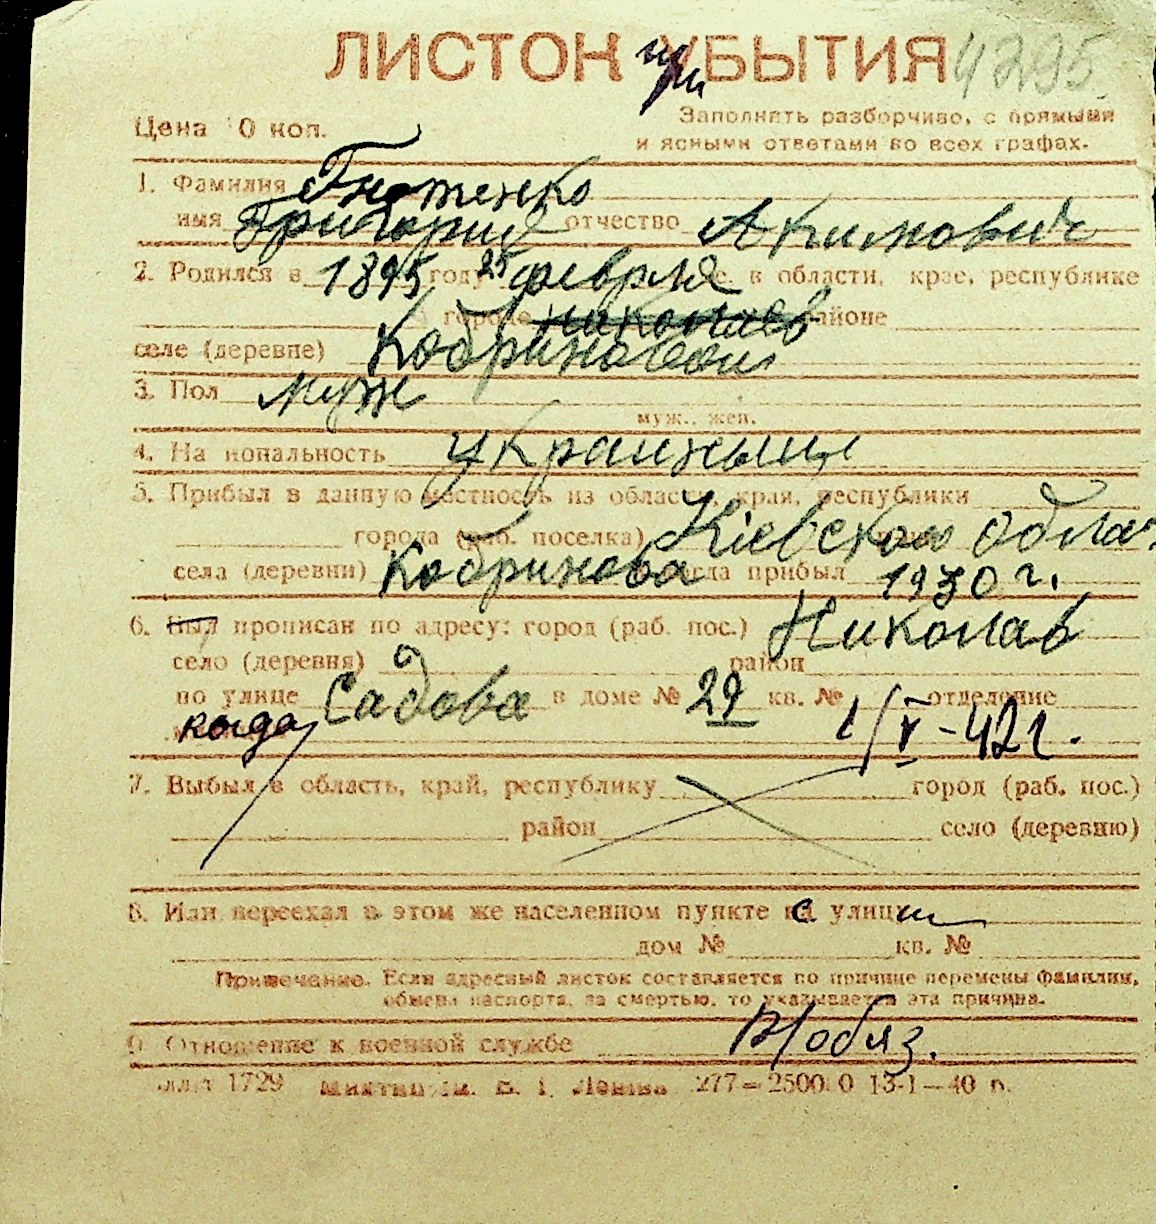 ЛИСТОК при УБЫТИЯ 4295.
Цена 10 коп.
Заполнять разборчиво, с прямыми
и ясными ответами во всех графах.
1. Фамилия Гноженко
имя Григорий отчество Акимович
2. Родился в 1895 году 25 февраля в области, крае, республике
городе Николаев районе
селе (деревне) Кобринова
3. Пол муж
муж., жен.
4. Национальность Украиныц
5. Прибыл в данную местность из области, края, республики
города (раб. поселка) Кіевской Облас
села (деревни) Кобринова когда прибыл 1930 г.
6. Был прописан по адресу: город (раб. пос.) Николаев
село (деревня) район
по улице Садова в доме № 29 кв. № отделение
когда 1/V-42 г.
7. Выбыл в область, край, республику город (раб. пос.)
район село (деревню)
8. Или переехал в этом же населенном пункте с улицы
дом № кв. №
Примечание. Если адресный листок составляется по причине перемены фамилии,
обмена паспорта, за смертью, то указывается эта причина.
9. Отношение к военной службе В/обяз.
1729 277—25000 13-I—40 г.